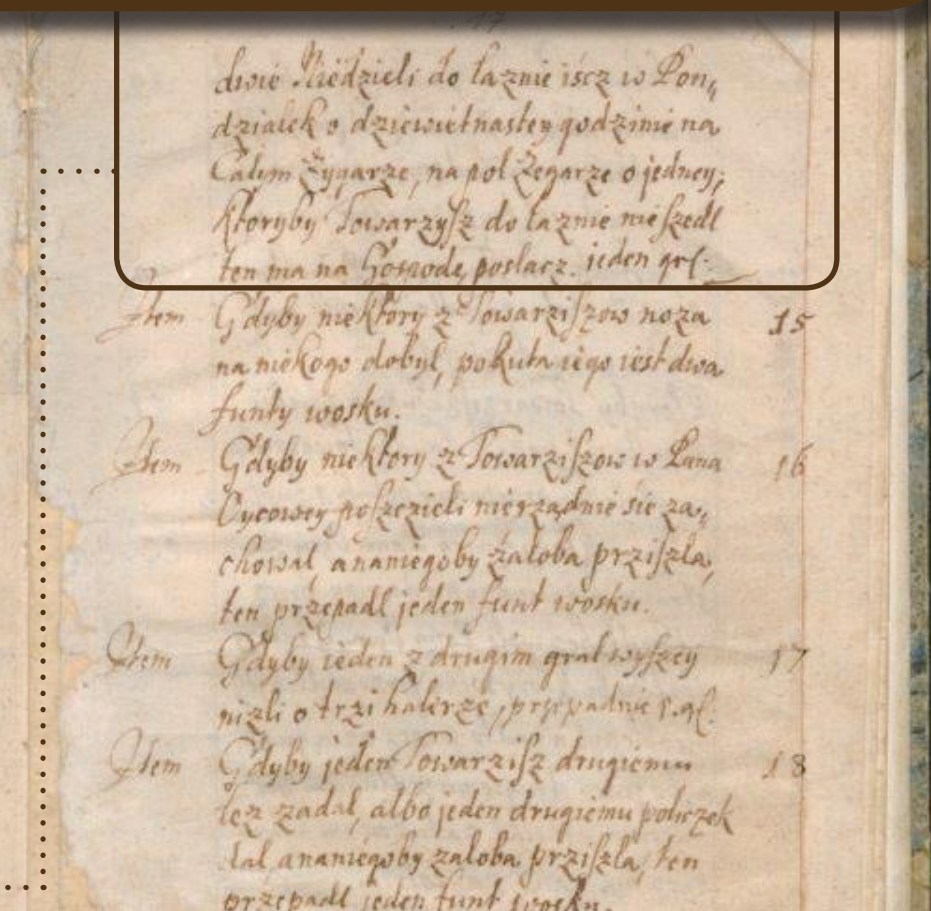 17
dwie Niedzieli do łaznie iscz w Pon„
działek o dziewiętnastey godzinie na
Całym Zygarze, na poł Zegarze o jedney;
ktoryby Towarzyſz do łaznie nie ſzedł
ten ma na Gospodę posłacz jeden grſ.
Item Gdyby niektory z Towarziſzow noza 15
na niekogo dobył, pokuta iego iest dwa
funty wosku.
Item Gdyby niektory z Towarziſzow w Pana 16
Oycowey poſzczieli nierządnie sie za„
chował, ananiegoby załoba prziſzła,
ten przepadł jeden funt wosku.
Item Gdyby ieden z drugim grał wyſzey 17
nizli o trzi halerze, przepadnie
Item Gdyby jeden Towarziſz drugiemu 18
łez zadał, albo jeden drugiemu policzek
dał, ananiegoby załoba prziſzła, ten
przepadł jeden funt wosku.